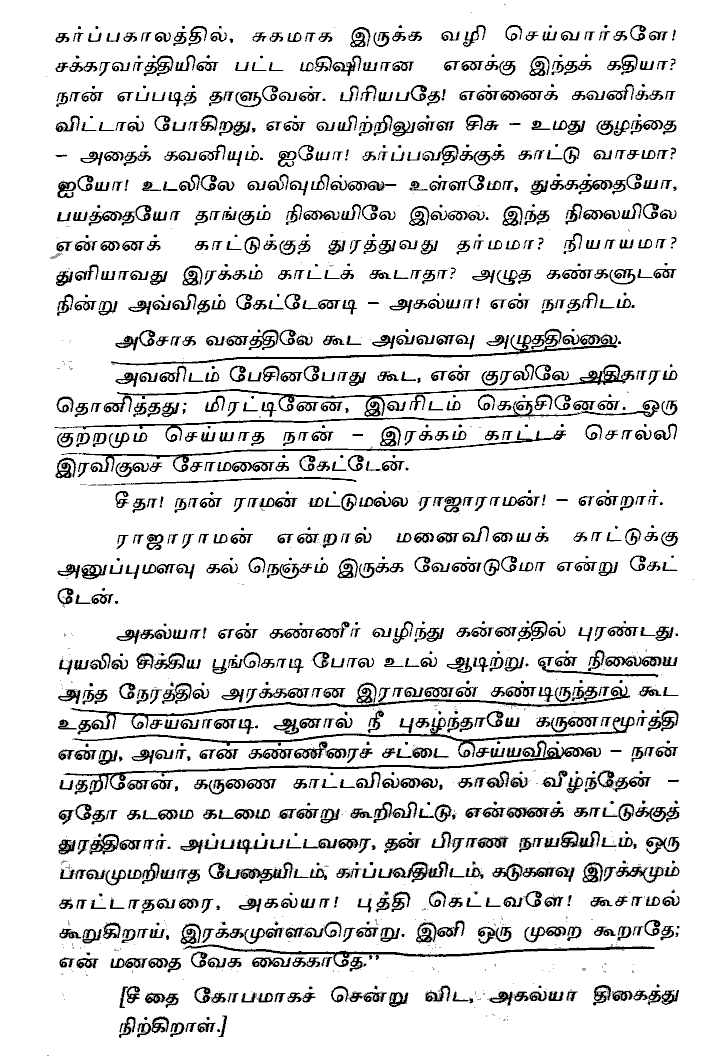 கர்ப்பகாலத்தில், சுகமாக இருக்க வழி செய்வார்களே!
சக்கரவர்த்தியின் பட்ட மகிஷியான எனக்கு இந்தக் கதியா?
நான் எப்படித் தாளுவேன். பிரியபதே! என்னைக் கவனிக்கா
விட்டால் போகிறது, என் வயிற்றிலுள்ள சிசு – உமது குழந்தை
– அதைக் கவனியும். ஐயோ! கர்ப்பவதிக்குக் காட்டு வாசமா?
ஐயோ! உடலிலே வலிவுமில்லை– உள்ளமோ, துக்கத்தையோ,
பயத்தையோ தாங்கும் நிலையிலே இல்லை. இந்த நிலையிலே
என்னைக் காட்டுக்குத் துரத்துவது தர்மமா? நியாயமா?
துளியாவது இரக்கம் காட்டக் கூடாதா? அழுத கண்களுடன்
நின்று அவ்விதம் கேட்டேனடி – அகல்யா! என் நாதரிடம்.
அசோக வனத்திலே கூட அவ்வளவு அழுததில்லை.
அவனிடம் பேசினபோது கூட, என் குரலிலே அதிகாரம்
தொனித்தது; மிரட்டினேன், இவரிடம் கெஞ்சினேன். ஒரு
குற்றமும் செய்யாத நான் – இரக்கம் காட்டச் சொல்லி
இரவிகுலச் சோமனைக் கேட்டேன்.
சீதா! நான் ராமன் மட்டுமல்ல ராஜாராமன்! – என்றார்.
ராஜாராமன் என்றால் மனைவியைக் காட்டுக்கு
அனுப்புமளவு கல் நெஞ்சம் இருக்க வேண்டுமோ என்று கேட்
டேன்.
அகல்யா! என் கண்ணீர் வழிந்து கன்னத்தில் புரண்டது.
புயலில் சிக்கிய பூங்கொடி போல உடல் ஆடிற்று. ஏன் நிலையை
அந்த நேரத்தில் அரக்கனான இராவணன் கண்டிருந்தால் கூட
உதவி செய்வானடி. ஆனால் நீ புகழ்ந்தாயே கருணாமூர்த்தி
என்று, அவர், என் கண்ணீரைச் சட்டை செய்யவில்லை – நான்
பதறினேன், கருணை காட்டவில்லை, காலில் வீழ்ந்தேன் –
ஏதோ கடமை கடமை என்று கூறிவிட்டு, என்னைக் காட்டுக்குத்
துரத்தினார். அப்படிப்பட்டவரை, தன் பிராண நாயகியிடம், ஒரு
பாவமுமறியாத பேதையிடம், கர்ப்பவதியிடம், கடுகளவு இரக்கமும்
காட்டாதவரை, அகல்யா! புத்தி கெட்டவளே! கூசாமல்
கூறுகிறாய், இரக்கமுள்ளவரென்று. இனி ஒரு முறை கூறாதே;
என் மனதை வேக வைககாதே.”
[சீதை கோபமாகச் சென்று விட, அகல்யா திகைத்து
நிற்கிறாள்.]